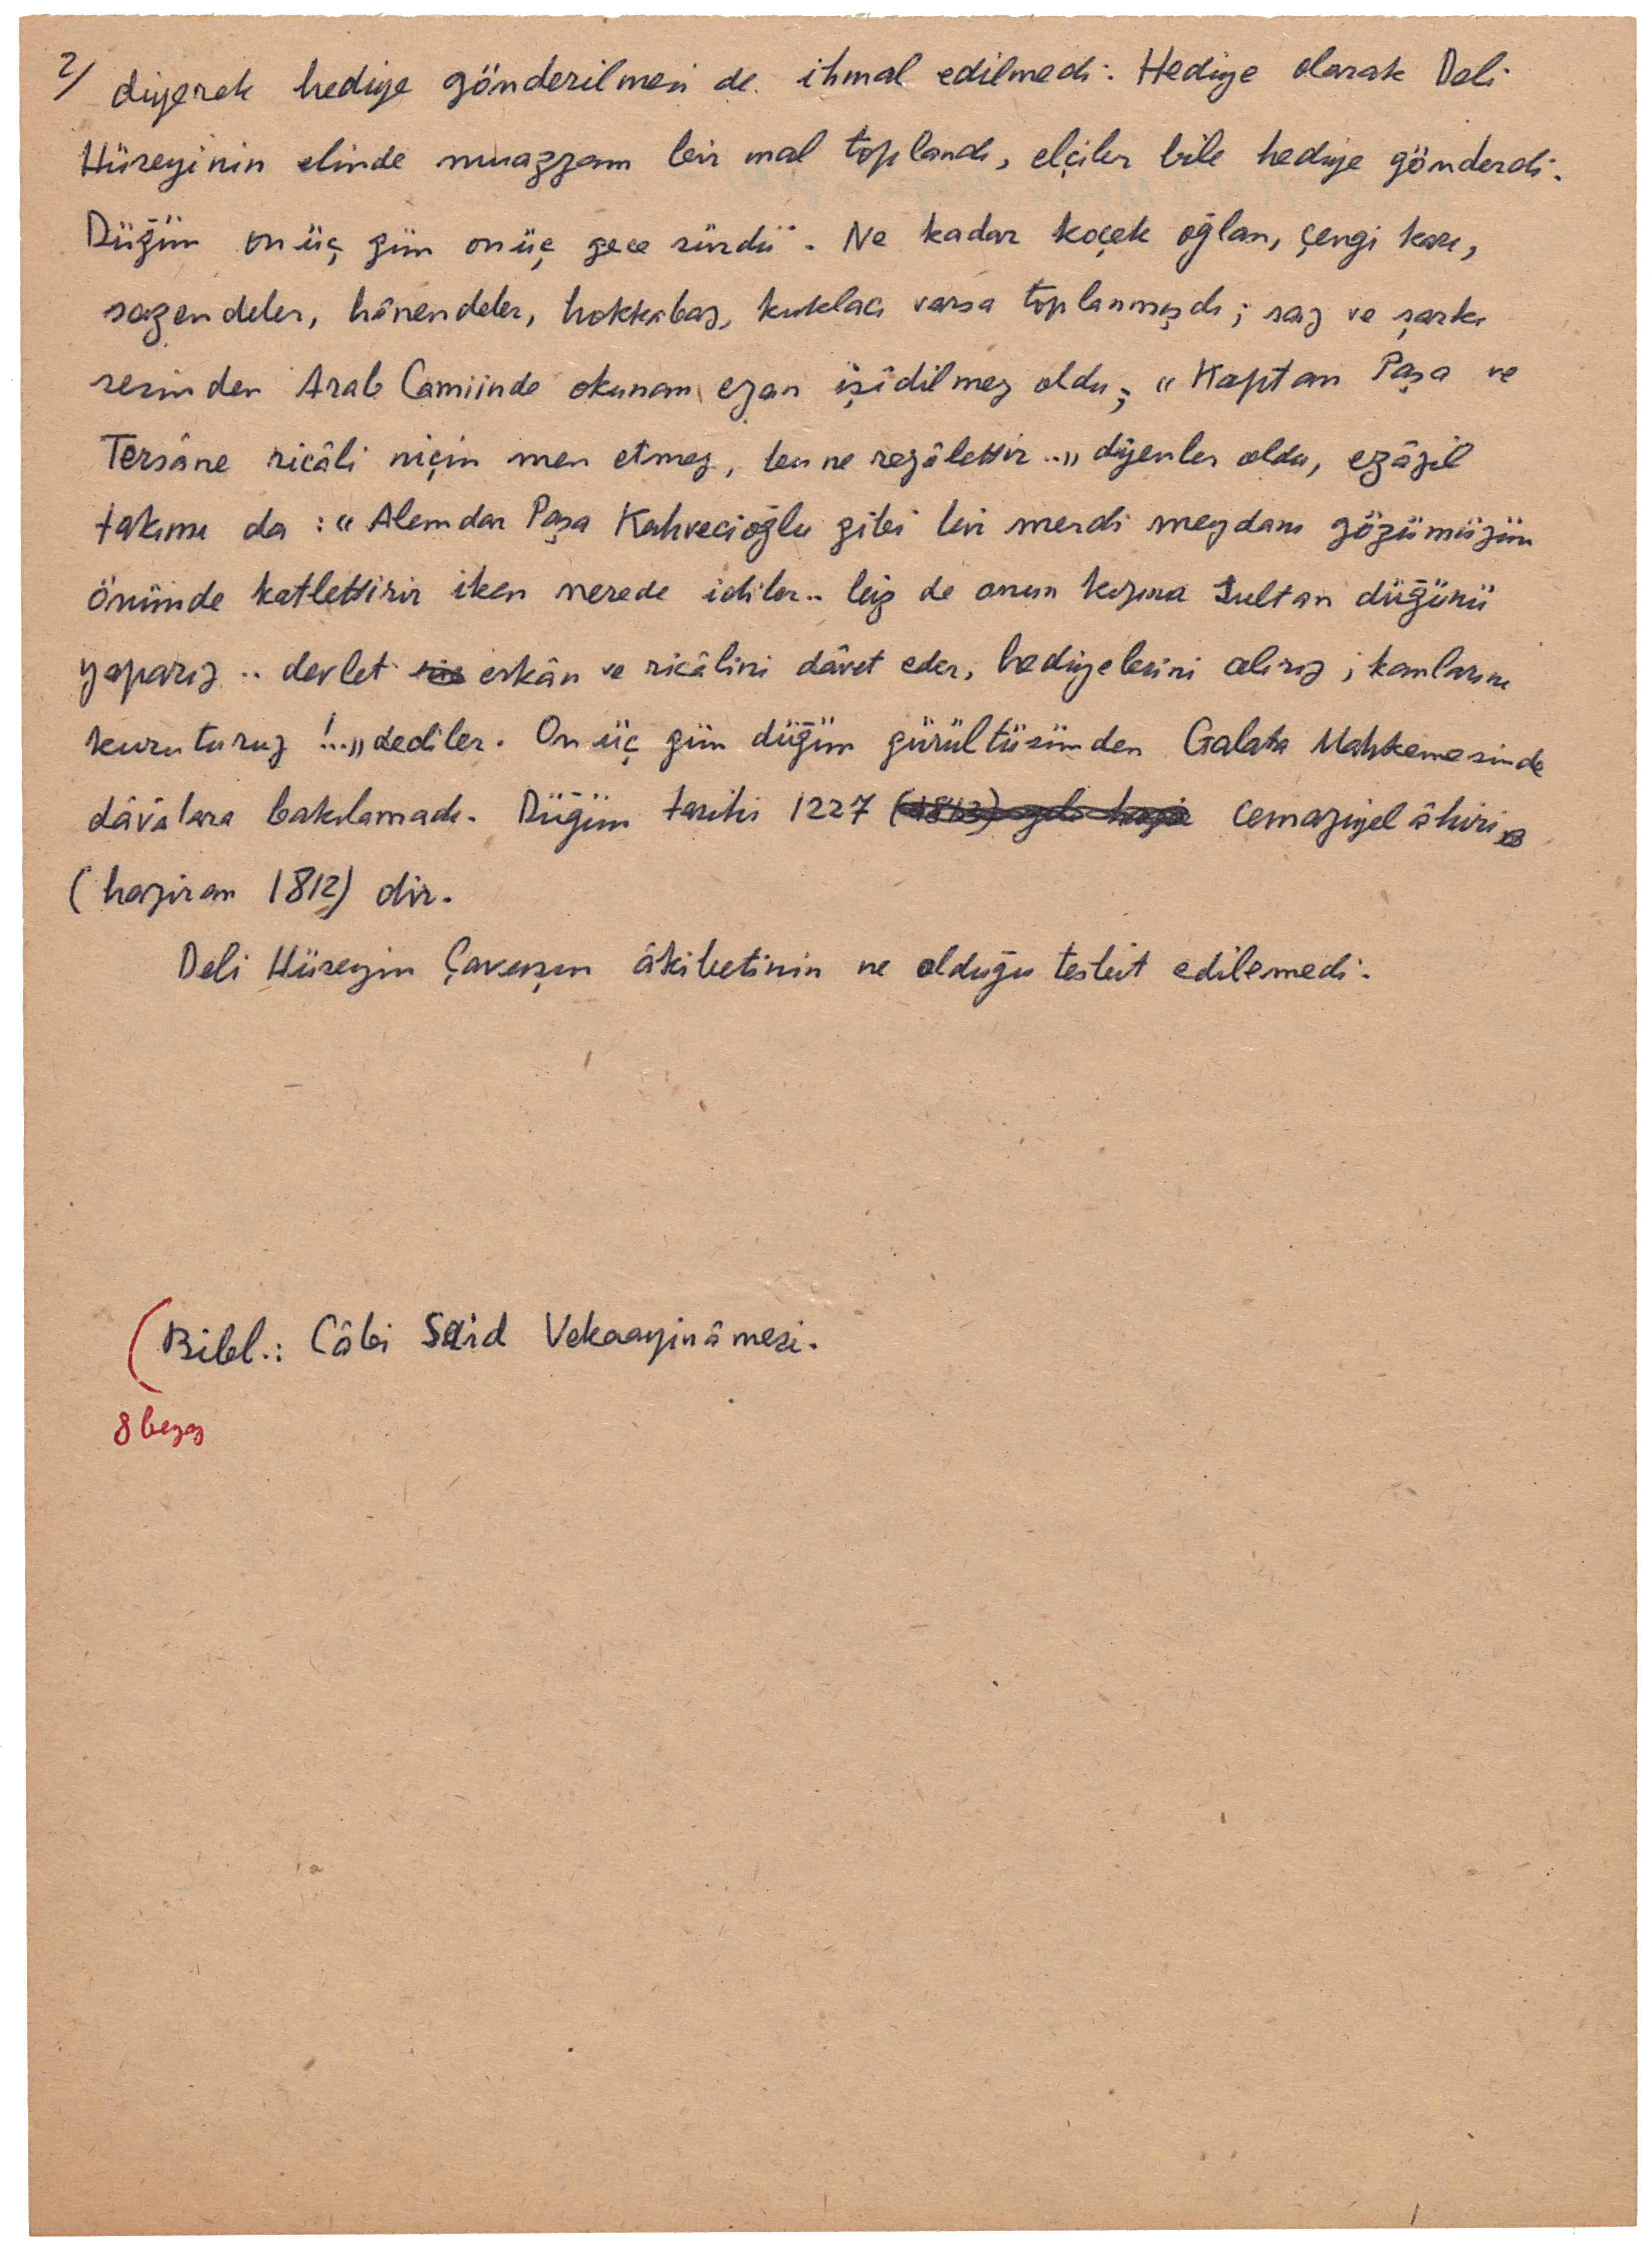 2/ diyerek hediye gönderilmesi de ihmal edilmedi. Hediye olarak Deli
Hüseyinin elinde muazzam bir mal toplandı, elçiler bile hediye gönderdi.
Düğün onüç gün onüç gece sürdü. Ne kadar koçek oğlan, çengi karı,
sazendeler, hânendeler, hokkabaz, kuklacı varsa toplanmışdı; saz ve şarkı
sesinden Arab Camiinde okunan ezan işidilmez oldu; "Kaptan Paşa ve
Tersâne ricâli niçin men etmez, bu ne rezâlettir.." diyenler oldu, ezâzil
takımı da : "Alemdar Paşa Kahvecioğlu gibi bir merdi meydanı gözümüzün
önünde katlettirir iken nerede idiler.. biz de onun kızına Sultan düğünü
yaparız .. devlet erkân ve ricâlini dâvet eder, hediyelerini alırız ; kanlarını
kuruturuz !..." dediler. Onüç gün düğün gürültüsünden Galata Mahkemesinde
dâvâlara bakılamadı. Düğün tarihi 1227 (1813) cemaziyelâhiri
(haziran 1812) dir.
Deli Hüseyin Çavuşun âkibetinin ne olduğu tesbit edilemedi.
(Bibl.: Câbi Said Vekaayinâmesi.
8 beyaz